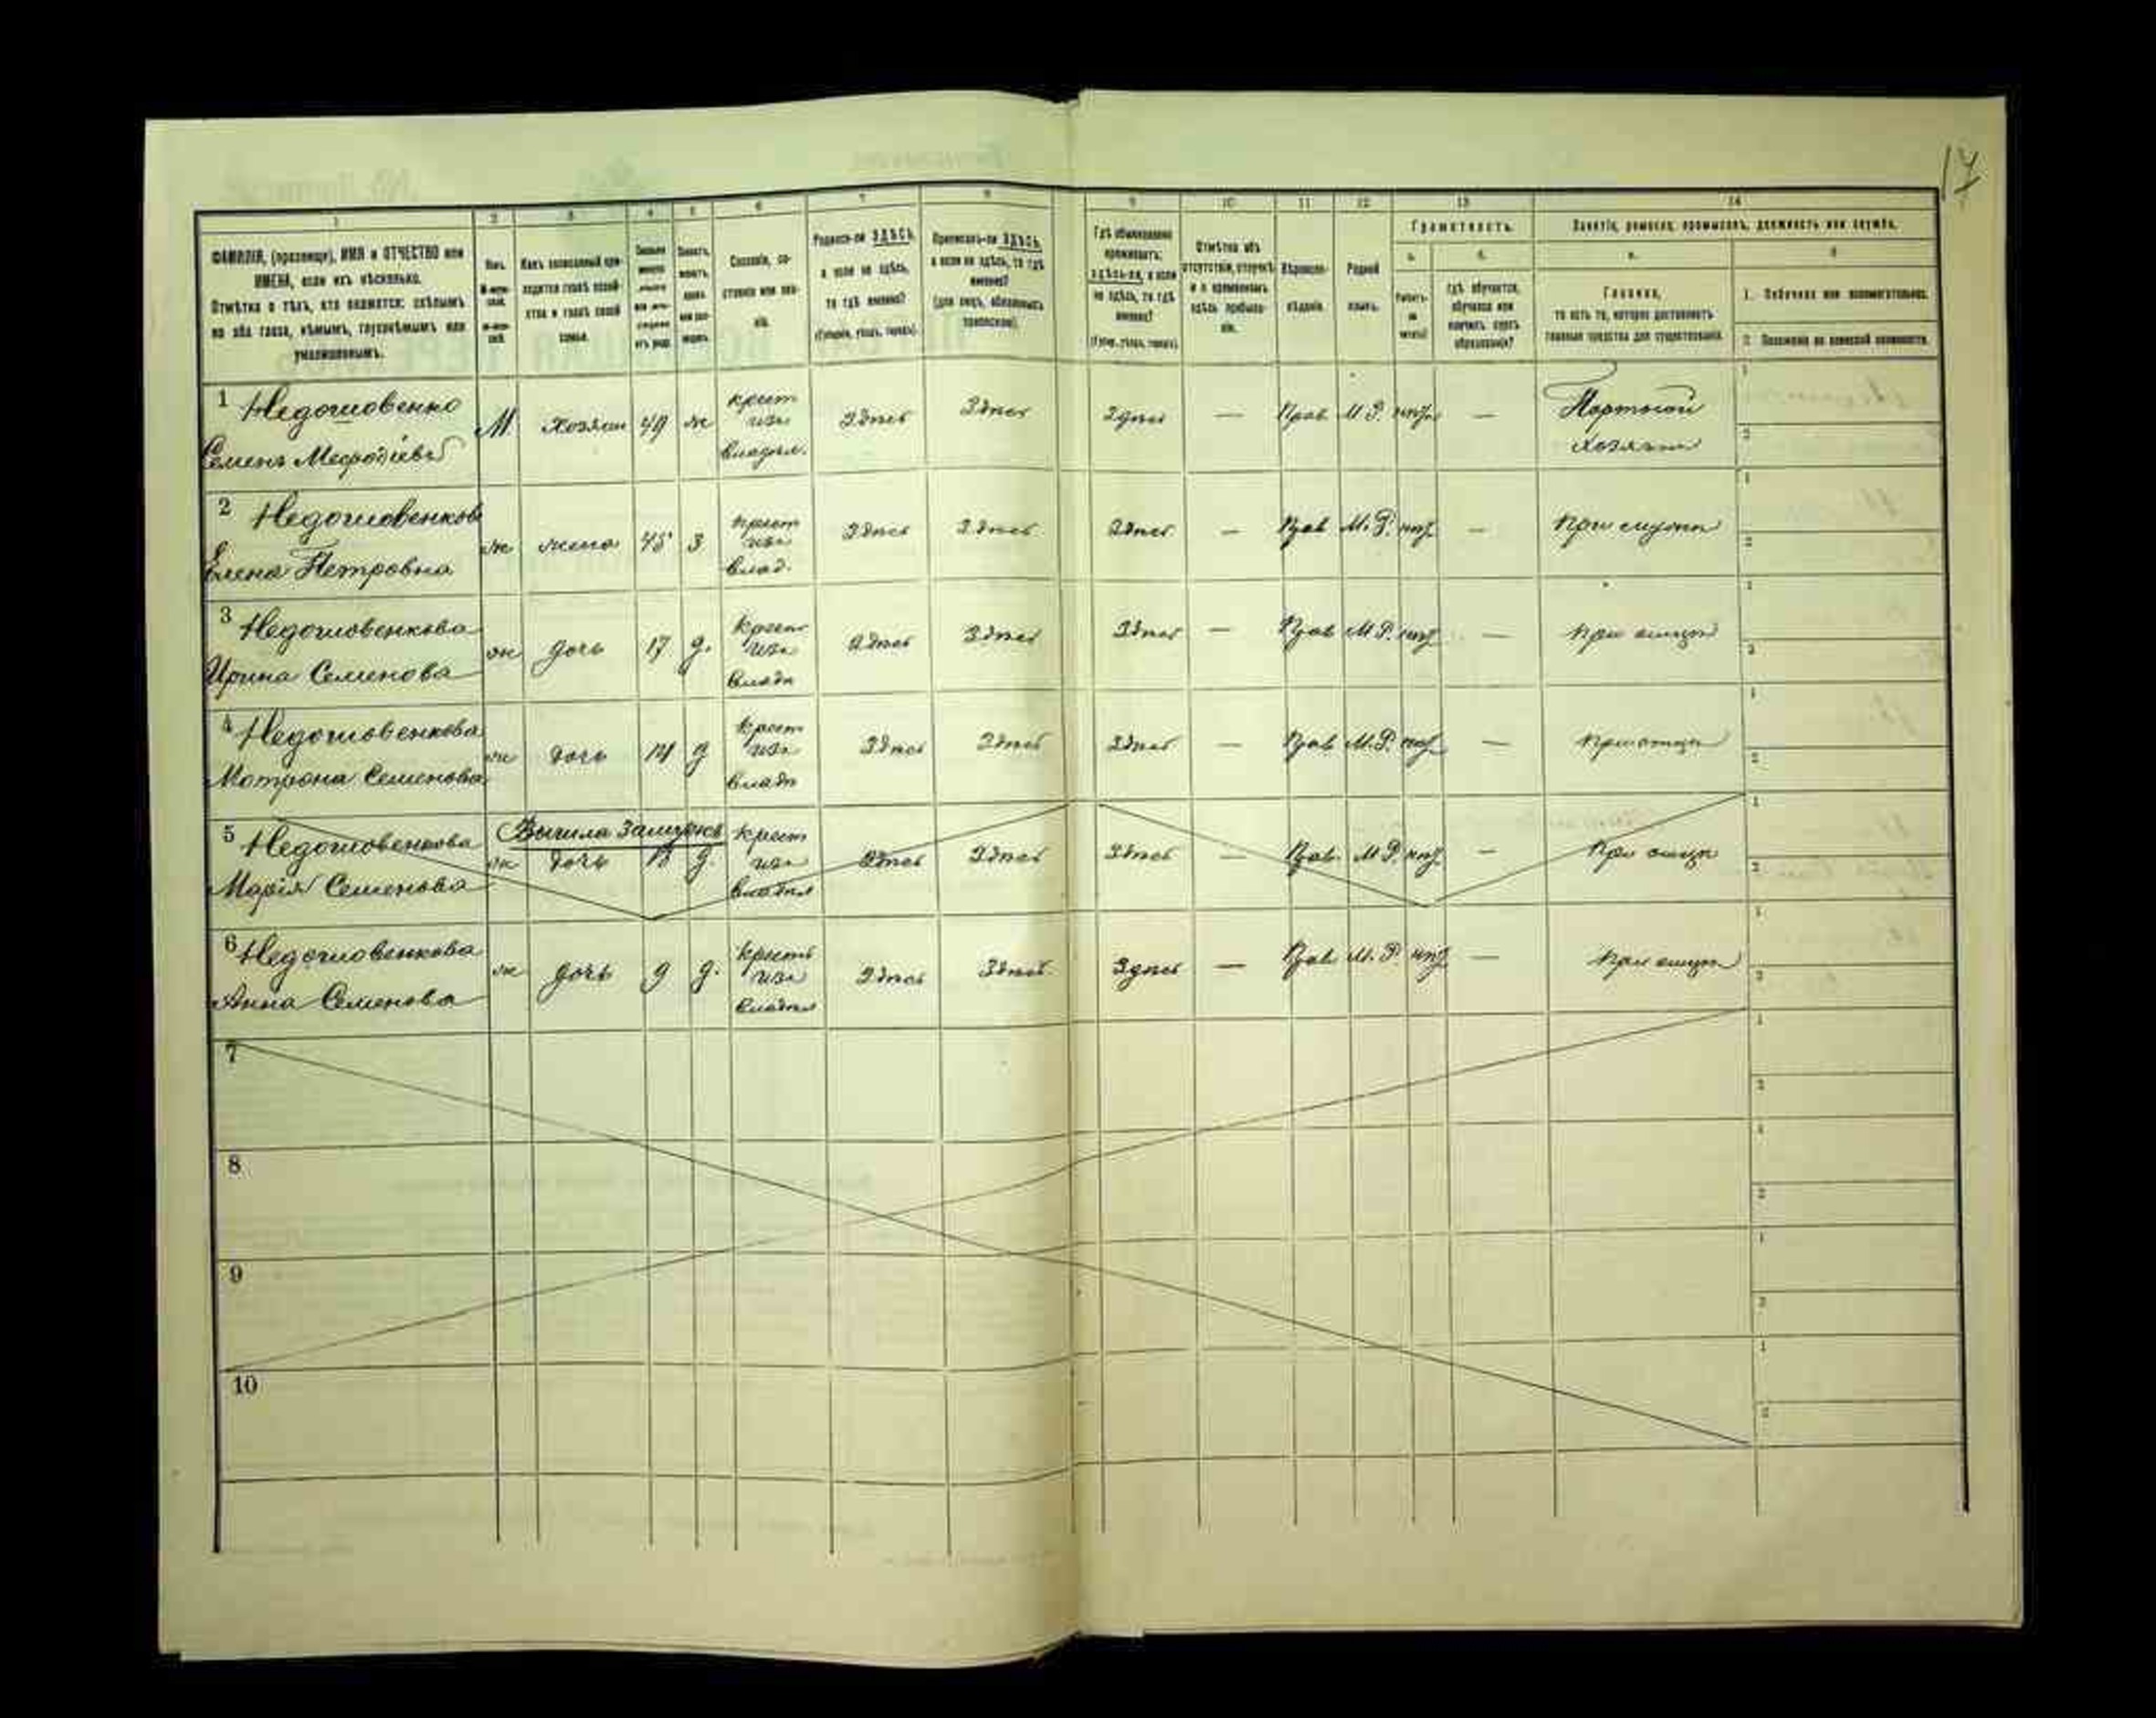 17
1 2 3 4 5 6 7 8 9 10 11 12 13 14
ФАМИЛІЯ, (прозвище), ИМЯ и ОТЧЕСТВО или
ИМЕНА, если ихъ нѣсколько.
Отмѣтка о тѣхъ, кто окажется: слѣпымъ
на оба глаза, нѣмымъ, глухонѣмымъ или
умалишеннымъ.
Полъ.
Какъ записанный при-
ходится главѣ хозяй-
ства и главѣ своей
семьи.
Сословіе, со-
стояніе или зва-
ніе.
Родился-ли ЗДѢСЬ,
а если не здѣсь,
то гдѣ именно?
(Губернія, уѣздъ, городъ).
Приписанъ-ли ЗДѢСЬ,
а если не здѣсь, то гдѣ
именно?
(для лицъ, обязанныхъ
припискою).
Гдѣ обыкновенно
проживаетъ:
здѣсь-ли, а если
не здѣсь, то гдѣ
именно?
(Губер., уѣздъ, городъ).
Отмѣтка объ
отсутствіи, отлучкѣ
и о временномъ
здѣсь пребыва-
ніи.
Вѣроиспо-
вѣданіе.
Родной
языкъ.
Грамотность.
а. б.
Умѣетъ-
ли
читать?
Гдѣ обучается,
обучался или
кончилъ курсъ
образованія?
Занятіе, ремесло, промыселъ, должность или служба.
а.
Главное,
то есть то, которое доставляетъ
главныя средства для существованія.
1. Побочное или вспомогательное.
2. Положеніе по воинской повинности.
1 Недошовенко
Семенъ Мефодіевъ
М хозяин 49 ж
крест
изъ
владѣл.
Здѣсь Здѣсь Здѣсь — Прав М.Р. нѣтъ —
Портной
хозяинъ
2 Недошовенкова
Елена Петровна
ж жена 45 З
крест
изъ
влад.
Здѣсь Здѣсь Здѣсь — Прав М.Р. нѣтъ — при мужѣ
3 Недошовенкова
Ирина Семенова
ж дочь 17 д.
крест
изъ
владѣ
Здѣсь Здѣсь Здѣсь — Прав М.Р. нѣтъ — при отцѣ
4 Недошовенкова
Мотрона Семенова
ж дочь 14 д
крест
изъ
владѣ
Здѣсь Здѣсь Здѣсь — Прав М.Р. нѣтъ — при отцѣ
Вышла замужъ
5 Недошовенкова
Марія Семенова
ж дочь д.
крест
изъ
владѣл
Здѣсь Здѣсь Здѣсь — Прав. М.Р. нѣтъ — при отцѣ
6 Недошовенкова
Анна Семенова
ж дочь 9 д.
крестъ
изъ
владѣл
Здѣсь Здѣсь Здѣсь — Прав М.Р. нѣтъ — при отцѣ
7
8
9
10